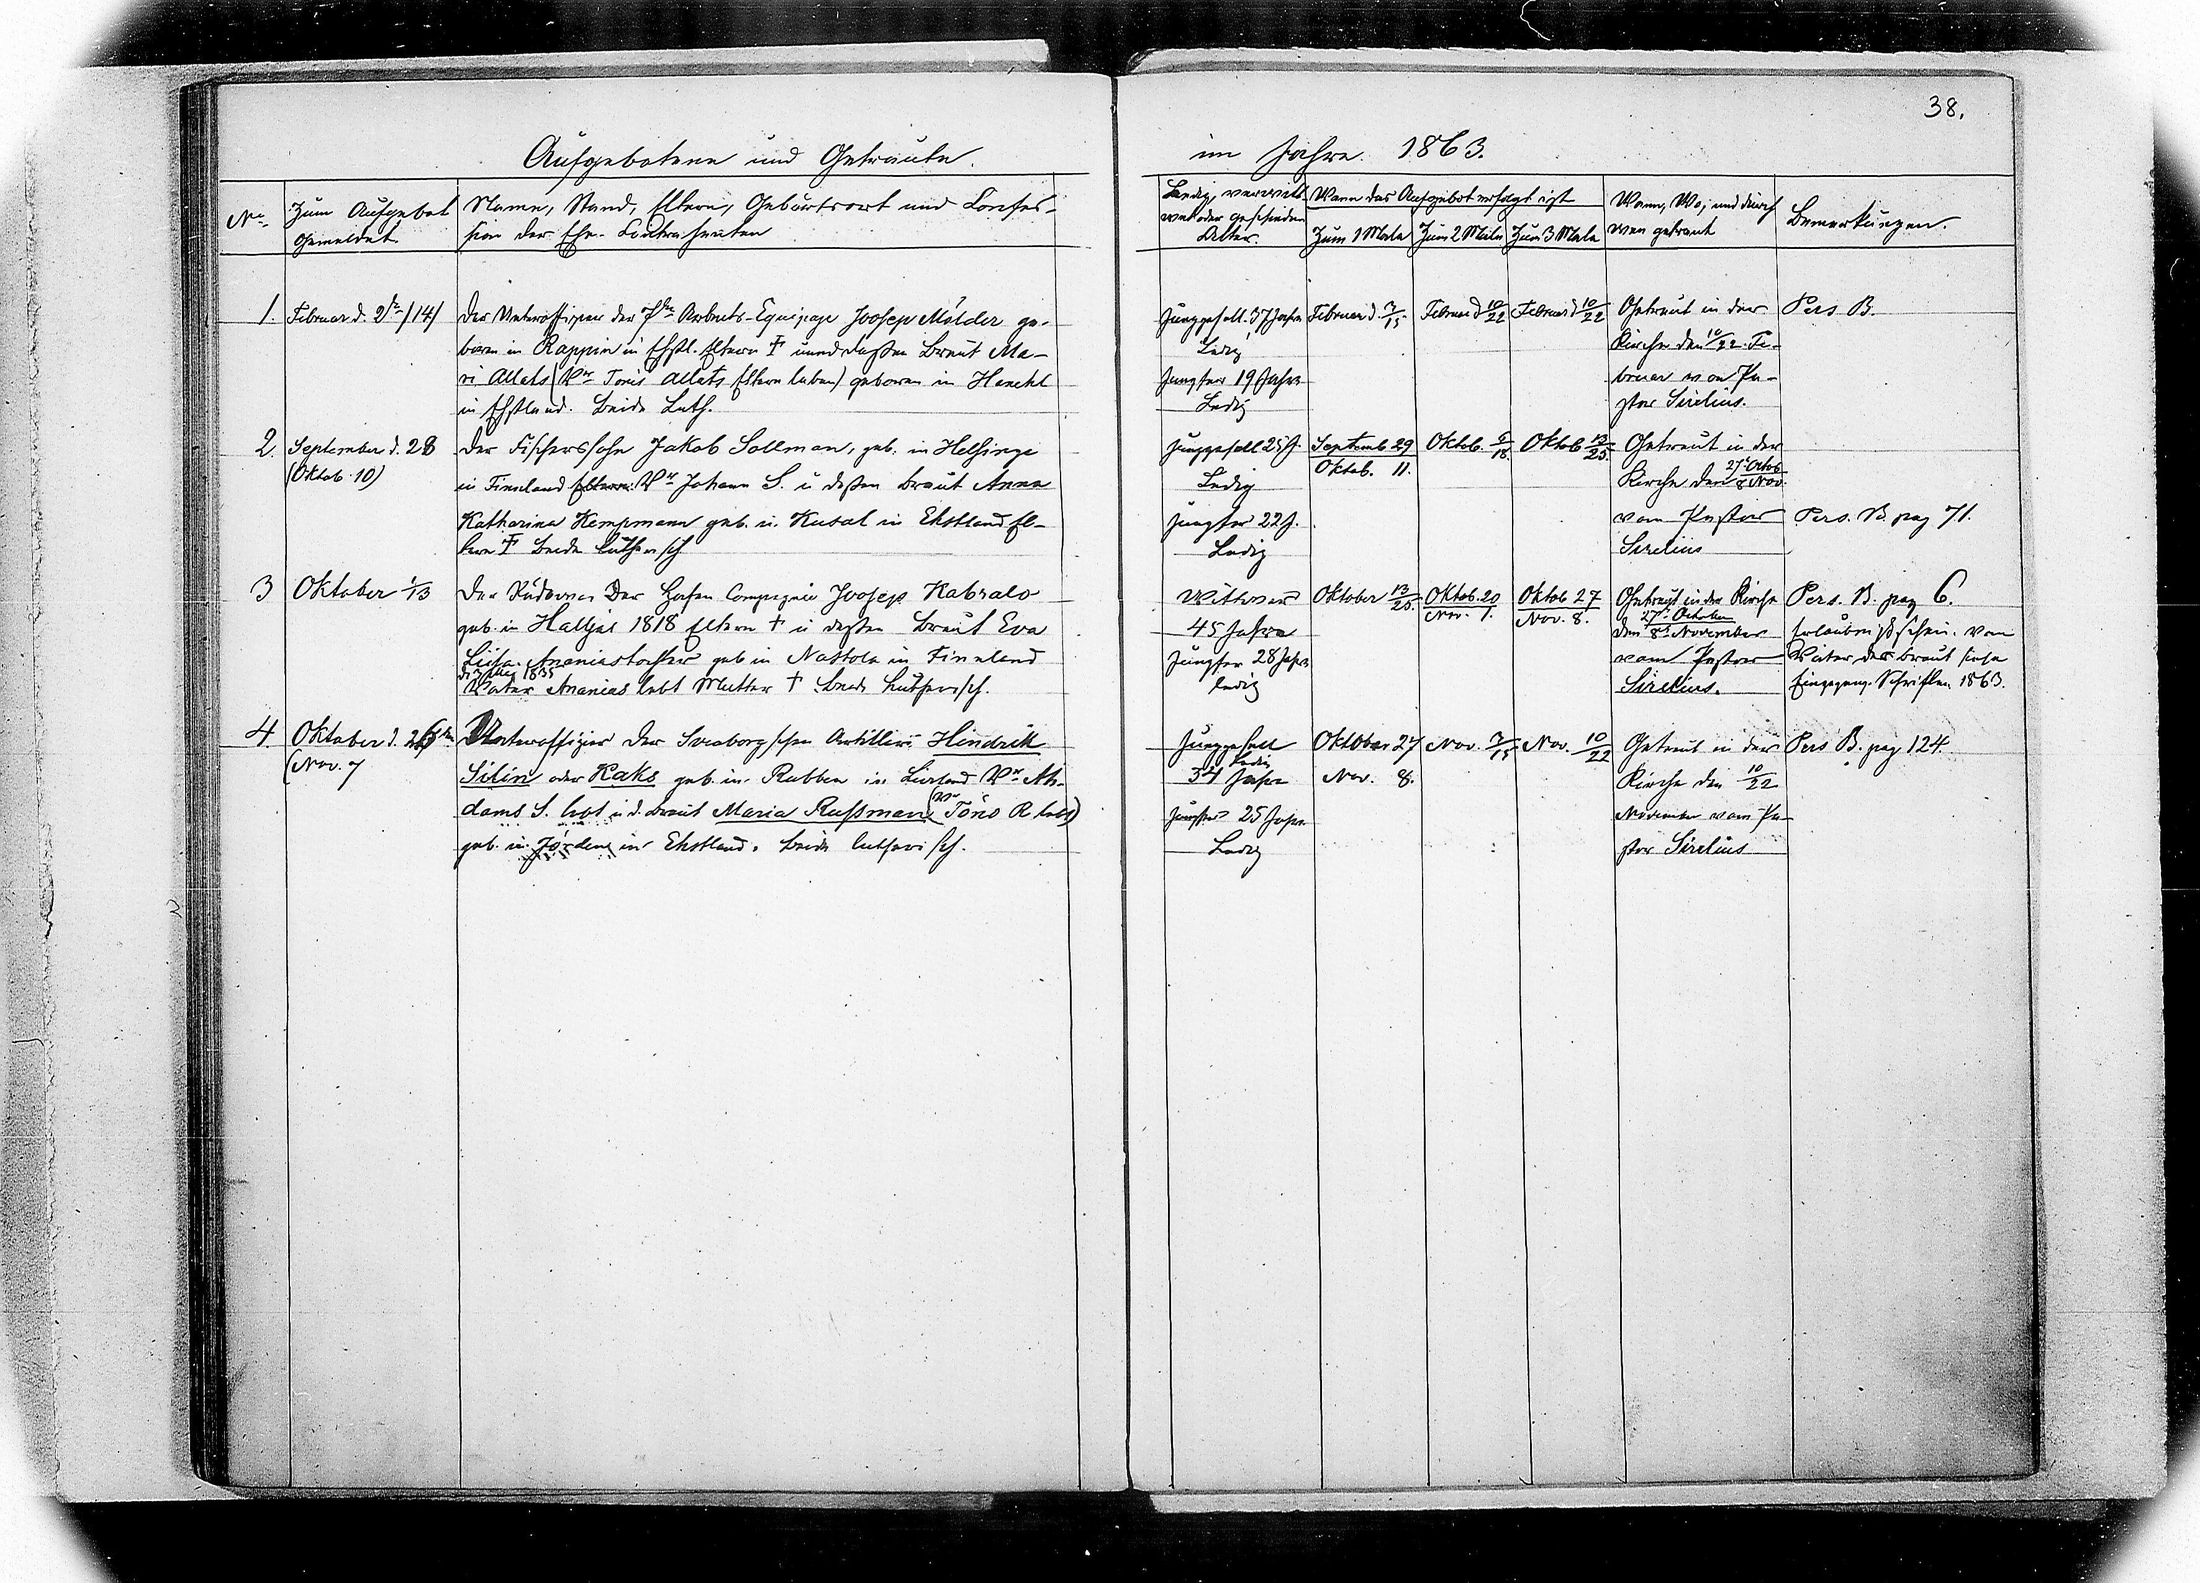 38.
Aufgebotene und Getraute
im Jahre 1863.
No
Zum Aufgebot
Gemeldet
Name, Stand, Eltern, Geburtsort und Confes-
sion der Ehe-Contrahenten
Ledig, verwitt-
wet oder geschieden
Alter
Wann das Aufgebot erfolgt ist
Zum 1 Male
Zum 2 Male
Zum 3 Male
Wann, Wo, und durch
wen getraut
Bemerkungen.
1. Februar d. 2ten /14/
Der Unteroffizier der Arbeits-Equipage Joosep Mölder ge-
boren in Rappin in Ehstl. Eltern † und dessen Braut Ma-
ri Allats (Vr Tonis Allats Eltern leben) geboren in
in Ehstland. Beide Luth.
Junggesell. 37 Jahre
Ledig
Jungfer 19 Jahre
Ledig
Februar d. 3/15.
Februar d 10/22
Februar d 10/22
Getraut in der
Kirche den 10/22 Fe-
bruar von Pa-
stor Sirelius.
Pers B.
2. September d. 28
(Oktob. 10)
Der Fischerssohn Jakob Sollman, geb. in Helsinge
in Finnland Eltern: Vr Johann S. u dessen Braut Anna
Katharina Kempmann geb. in Kusal in Ehstland El-
tern † Beide lutherisch
Junggesell 25 J.
Ledig
Jungfer 22 J.
Ledig
Septemb 29
Oktob. 11.
Oktob. 6/18.
Oktob 13/25.
Getraut in der
Kirche den 27 Octob
8 Nov.
vom Pastor
Sirelius
Pers. B. pag 71.
3 Oktober 1/13
Der Hafen Compagnie Joosep Kabralo
geb. in Halljal 1818 Eltern † u dessen Braut Eva
Luisa Ananiastochter geb in Nastola in Finnland
1835
Vater Ananias lebt Mutter † Beide lutherisch.
Wittwer
45 Jahre
Jungfer 28 Jahre
ledig
Oktober 13/25.
Oktob. 20
Nov. 1.
Oktob 27
Nov. 8.
Getraut in der Kirche
27 October
den 8 November
vom Pastor
Sirelius.
Pers. B. pag 6.
Erlaubnißschein. vom
Vater der Braut siehe
Eingegang. Schriften 1863.
4. Oktober d. 26ten
(Nov. 7
Unteroffizier der Sveaborgschen Artillerie Hindrik
Silin oder Kaks geb. in Rabben in Livland Vr
dams S. lebt u d. Braut Maria Russmann (Vr Töno R. lebt)
geb. in Jörden in Ehstland. Beide lutherisch.
Junggesell
Ledig
34 Jahre
Jungfer 25 Jahre
Ledig
Oktober 27
Nov. 8.
Nov. 3/15
Nov. 10/22
Getraut in der
Kirche den 10/22
November vom Pa-
stor Sirelius
Pers B. pag 124.